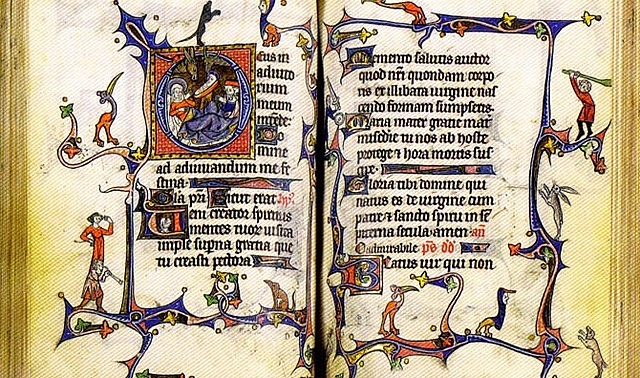 eus in
adiuto
rium
meum
intede:
Do
mine
ad adiuuandum me fe
stina·
Gla pri Sicut erat hy
Ueni creator spiritus
mentes tuor uisita
imple supna gratia que
tu creasti pectora
Memento salutis auctor
quod nri quondam corpo
ris ex illibata uirgine nas
cendo formam sumpseris
Maria mater gratie mat
misedie tu nos ab hoste
protege & hora mortis sus
cipe
Gloria tibi domine qui
natus es de uirgine cum
patre & sancto spiritu in se
piterna secula amen an
O admirabile ps dd
Beatus uir qui non